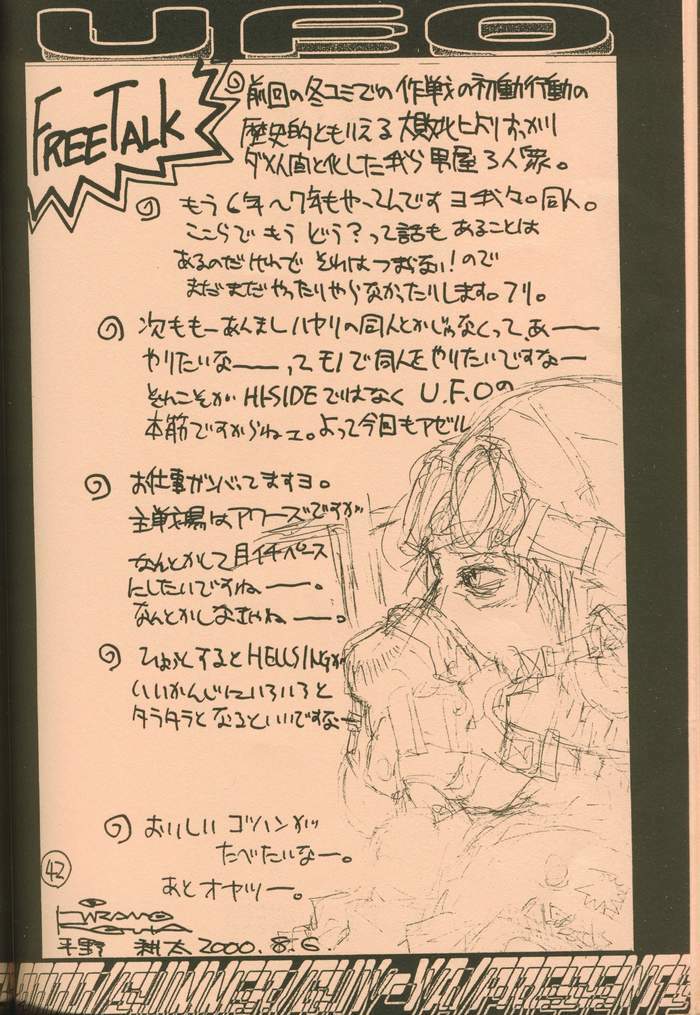 UFO
FREE TALK
前回の冬コミでの作戦の初動行動の
歴史的ともいえる大敗北によりすっかり
ダメ人間と化した我ら甲屋3人衆。
もう6年〜7年もやってんですヨ我々。同人。
ここらでもうどう?って話もあることは
あるのだけれどそれはつまらない!ので
まだまだやったりやらなかったりします。フリ。
次ももーあんましハヤリの同人とかじゃなくって、あーー
やりたいなーーってモノで同人をやりたいですなー
それこそがHI-SIDEではなくU.F.Oの
本筋ですからねェ。よって今回もアゼル
お仕事ガンバってますヨ。
主戦場はアワーズですが
なんとかして月イチペース
にしたいですねーー。
なんとかしなきゃねーー。
ひょっとするとHELLSINGが
いいかんじにいろいろと
タラタラとなるといいですなー
おいしいゴハンが
たべたいなー。
あとオヤツー。
42
HIRANO
KOHTA
平野 耕太 2000.8.6.
SUMMER GUN-YA PRESENTS